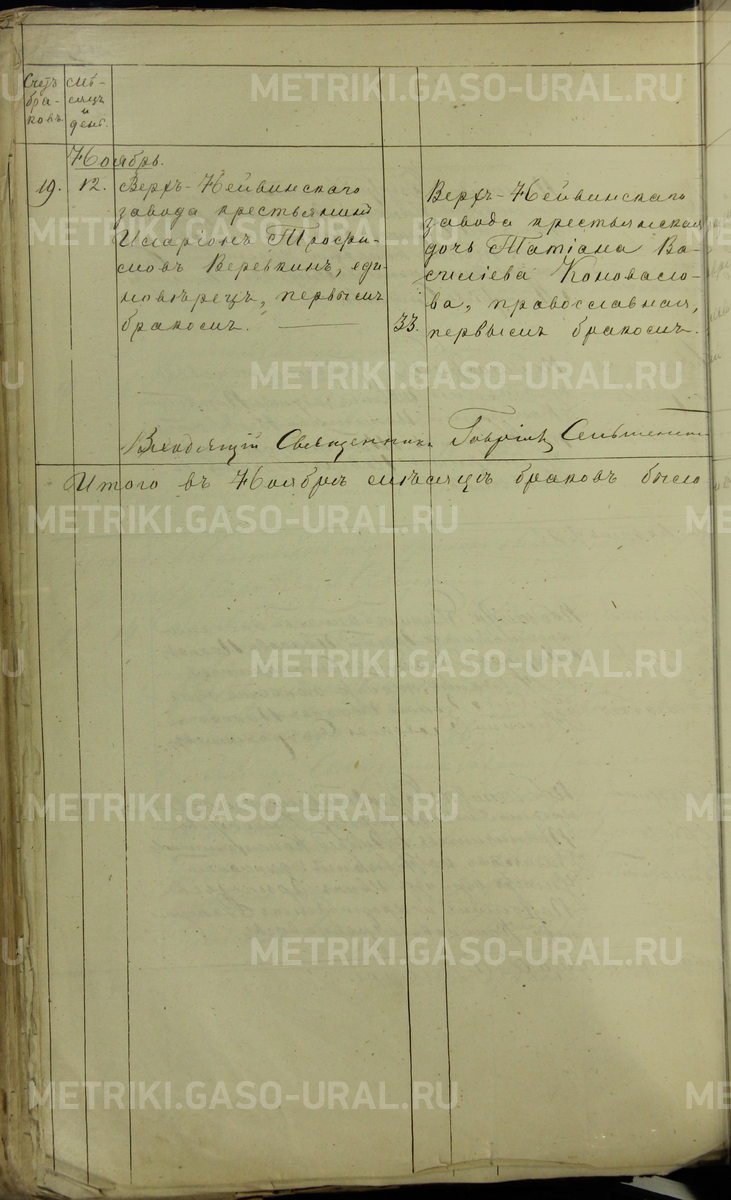 Счетъ
бра-
ковъ.
Мѣ-
сяцъ
и
день.
Ноябрь.
19. 12. Верхъ-Нейвинскаго
завода крестьянинъ
Иларіонъ Трофи-
мовъ Веревкинъ, еди-
новѣрецъ, первымъ
бракомъ.
33.
Верхъ-Нейвинскаго
завода крестьянская
дочь Татіана Ва-
силіева Коновало-
ва, православная,
первымъ бракомъ.
Священникъ Гавріилъ
Итого въ Ноябрѣ мѣсяцѣ браковъ было
METRIKI.GASO-URAL.RU